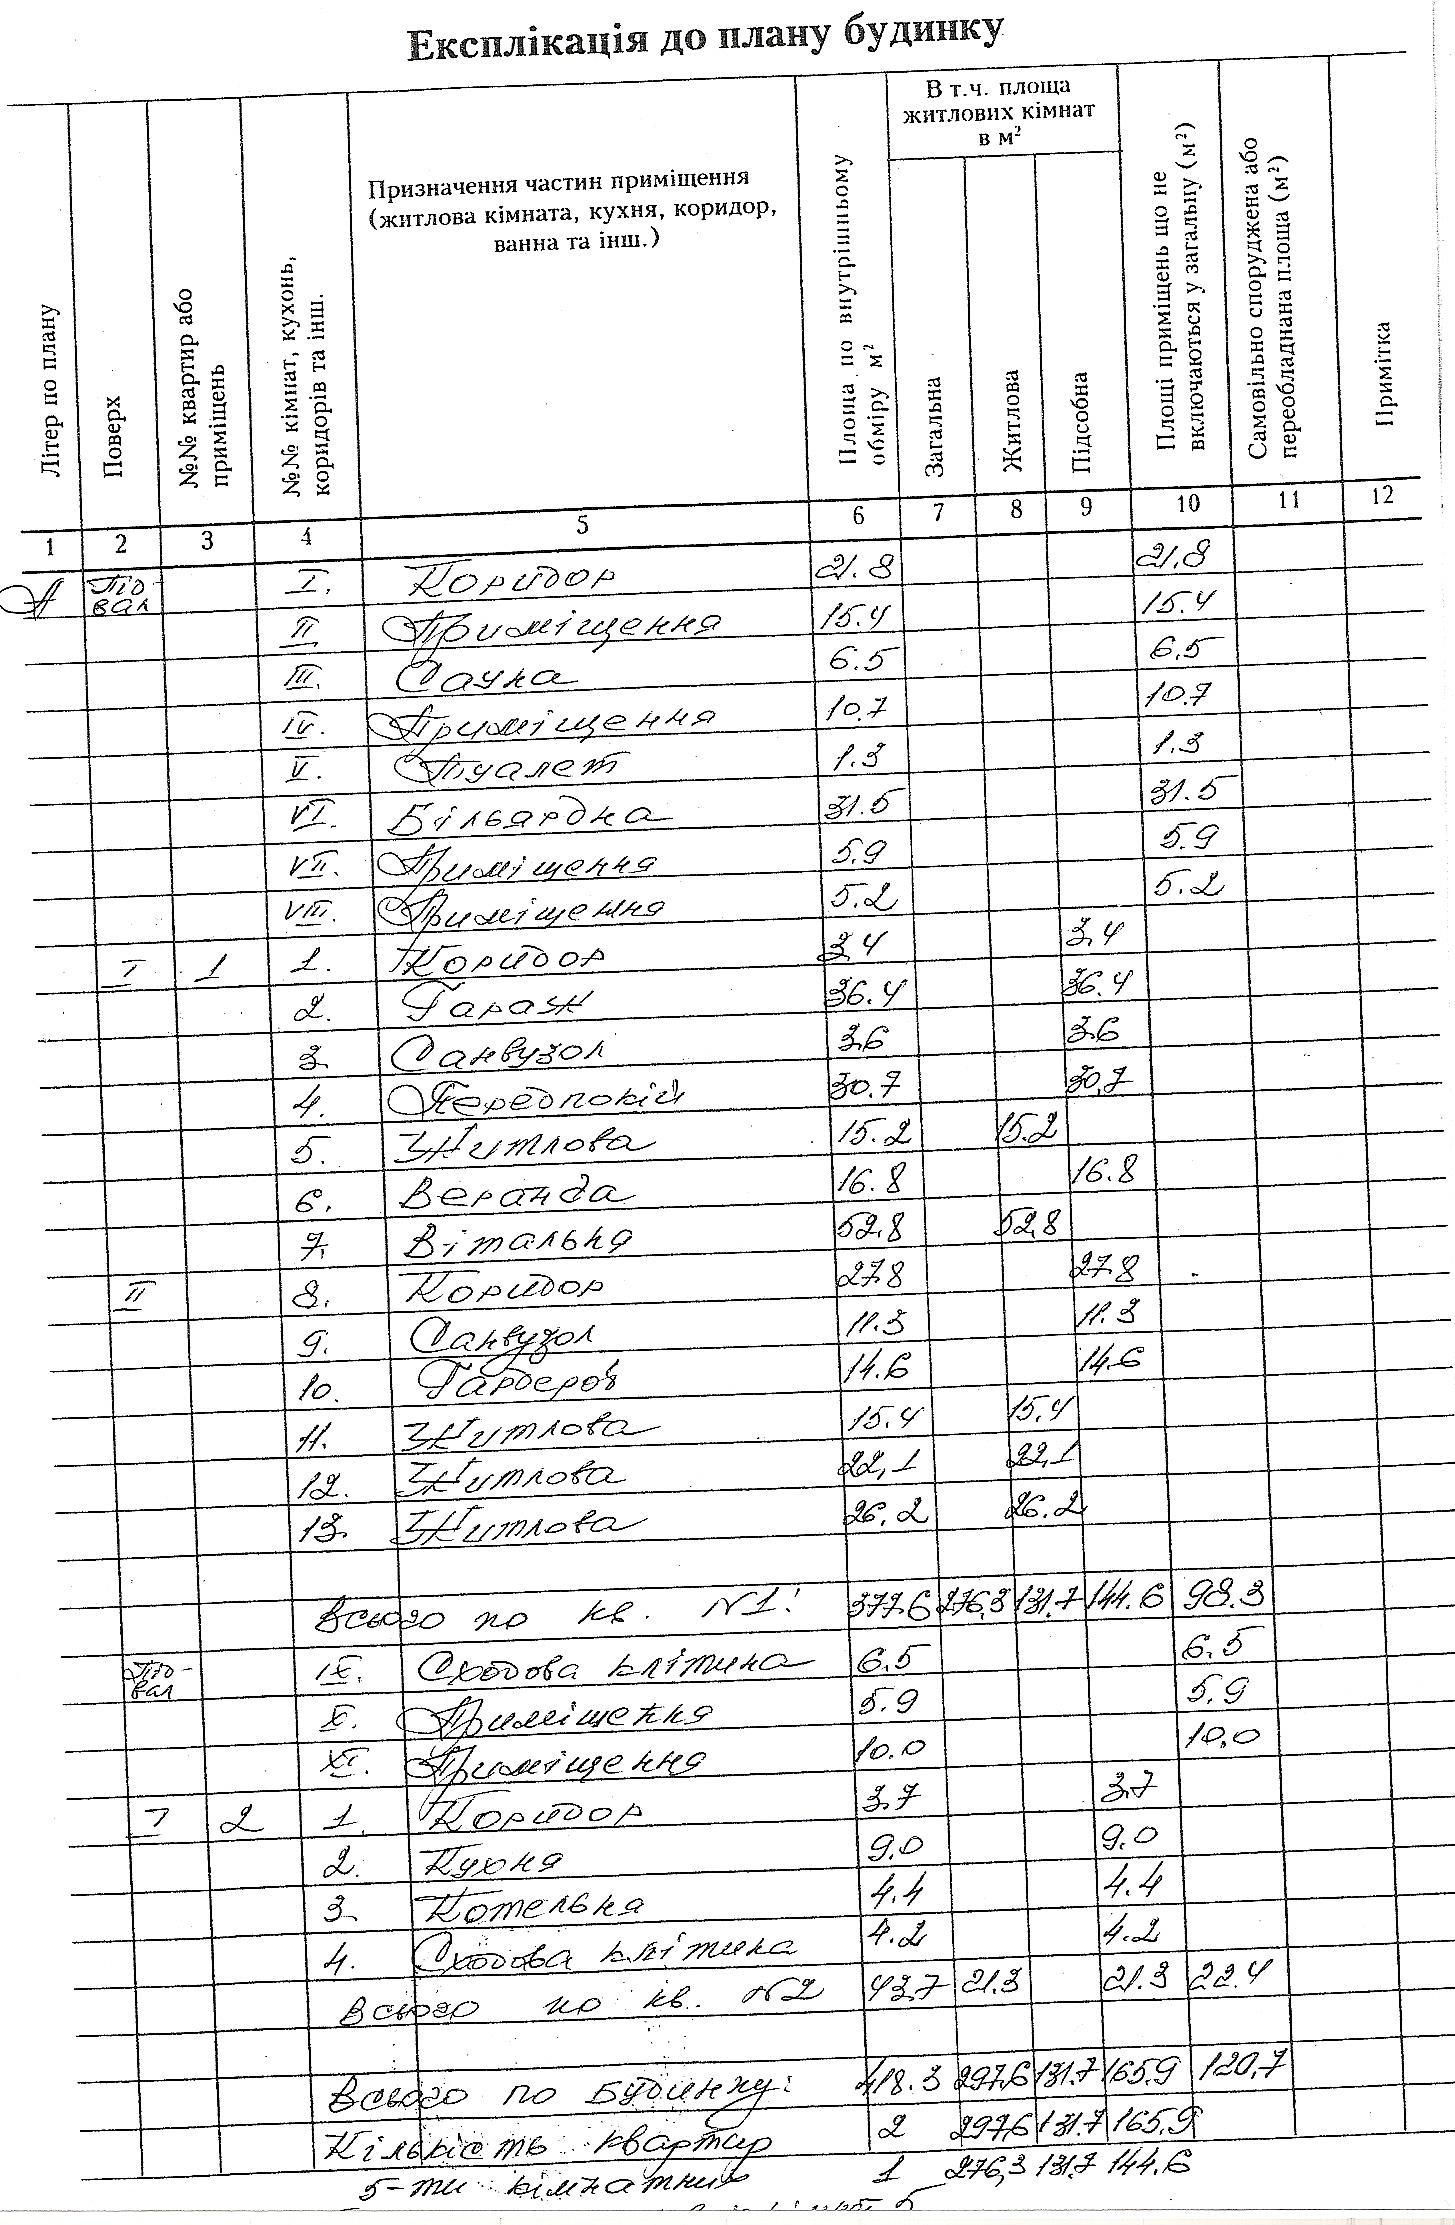 Експлікація до плану будинку
Літер по плану
Поверх
№№ квартир або
приміщень
№№ кімнат, кухонь,
коридорів та інш.
Призначення частин приміщення
(житлова кімната, кухня, коридор,
ванна та інш.)
Площа по внутрішньому
обміру м²
В т.ч. площа
житлових кімнат
в м²
Загальна
Житлова
Підсобна
Площі приміщень що не
включаються у загальну (м²)
Самовільно споруджена або
переобладнана площа (м²)
Примітка
1 2 3 4 5 6 7 8 9 10 11 12
А Підвал I. Коридор 21.8 21,8
II Приміщення 15.4 15.4
III. Сауна 6.5 6.5
IV. Приміщення 10.7 10.7
V. Туалет 1.3 1.3
VI. Більярдна 31.5 31.5
VII. Приміщення 5.9 5.9
VIII. Приміщення 5.2 5.2
I 1 1. Коридор 3,4 3,4
2. Гараж 36.4 36.4
3. Санвузол 3,6 3,6
4. Передпокій 30.7 30,7
5. Житлова 15.2 15.2
6. Веранда 16.8 16.8
7. Вітальня 52,8 52,8
II 8. Коридор 27.8 27.8
9. Санвузол 11.3 11.3
10. Гардероб 14.6 14.6
11. Житлова 15.4 15,4
12. Житлова 22,1 22,1
13. Житлова 26,2 26.2
Всього по кв. N1: 377.6 276,3 131.7 144.6 98.3
Підвал IX. Сходова клітина 6.5 6.5
X. Приміщення 5.9 5.9
XI. Приміщення 10.0 10,0
I 2 1. Коридор 3.7 3.7
2. Кухня 9.0 9.0
3. Котельня 4.4 4.4
4. Сходова клітина 4.2 4.2
Всього по кв. N2 43,7 21.3 21.3 22.4
Всього по будинку: 418.3 297,6 131.7 165.9 120,7
Кількість квартир 2 297,6 131.7 165.9
5-ти кімнатних 1 276,3 131.7 144.6